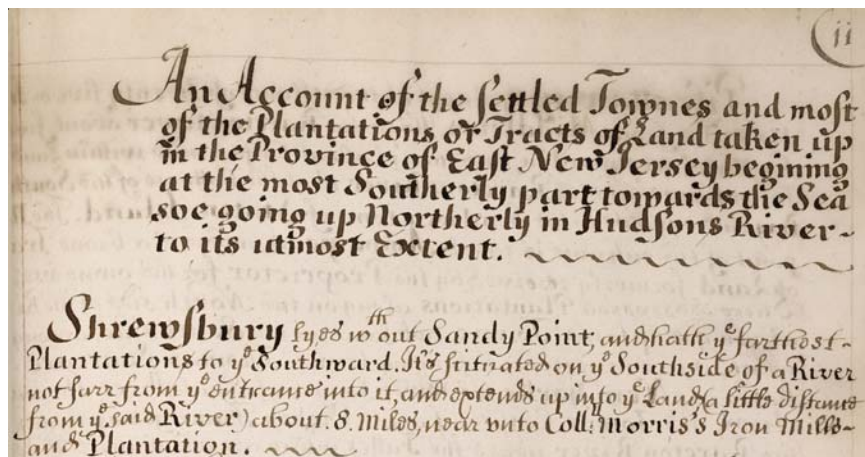 ii
An Account of the settled Townes and most
of the Plantations or Tracts of Land taken up
in the Province of East New Jersey begining
at the most Southerly part towards the Sea
soe going up Northerly in Hudsons River
to its utmost Extent.
Shrewsbury lyes wth out Sandy Point, and hath ye farthest
Plantations to ye Southward. It's scituated on ye Southside of a River
not farr from ye entrance into it, and extends up into ye Land (a little distance
from ye said River) about 8 Miles, near unto Coll: Morris's Iron Mills
and Plantation.